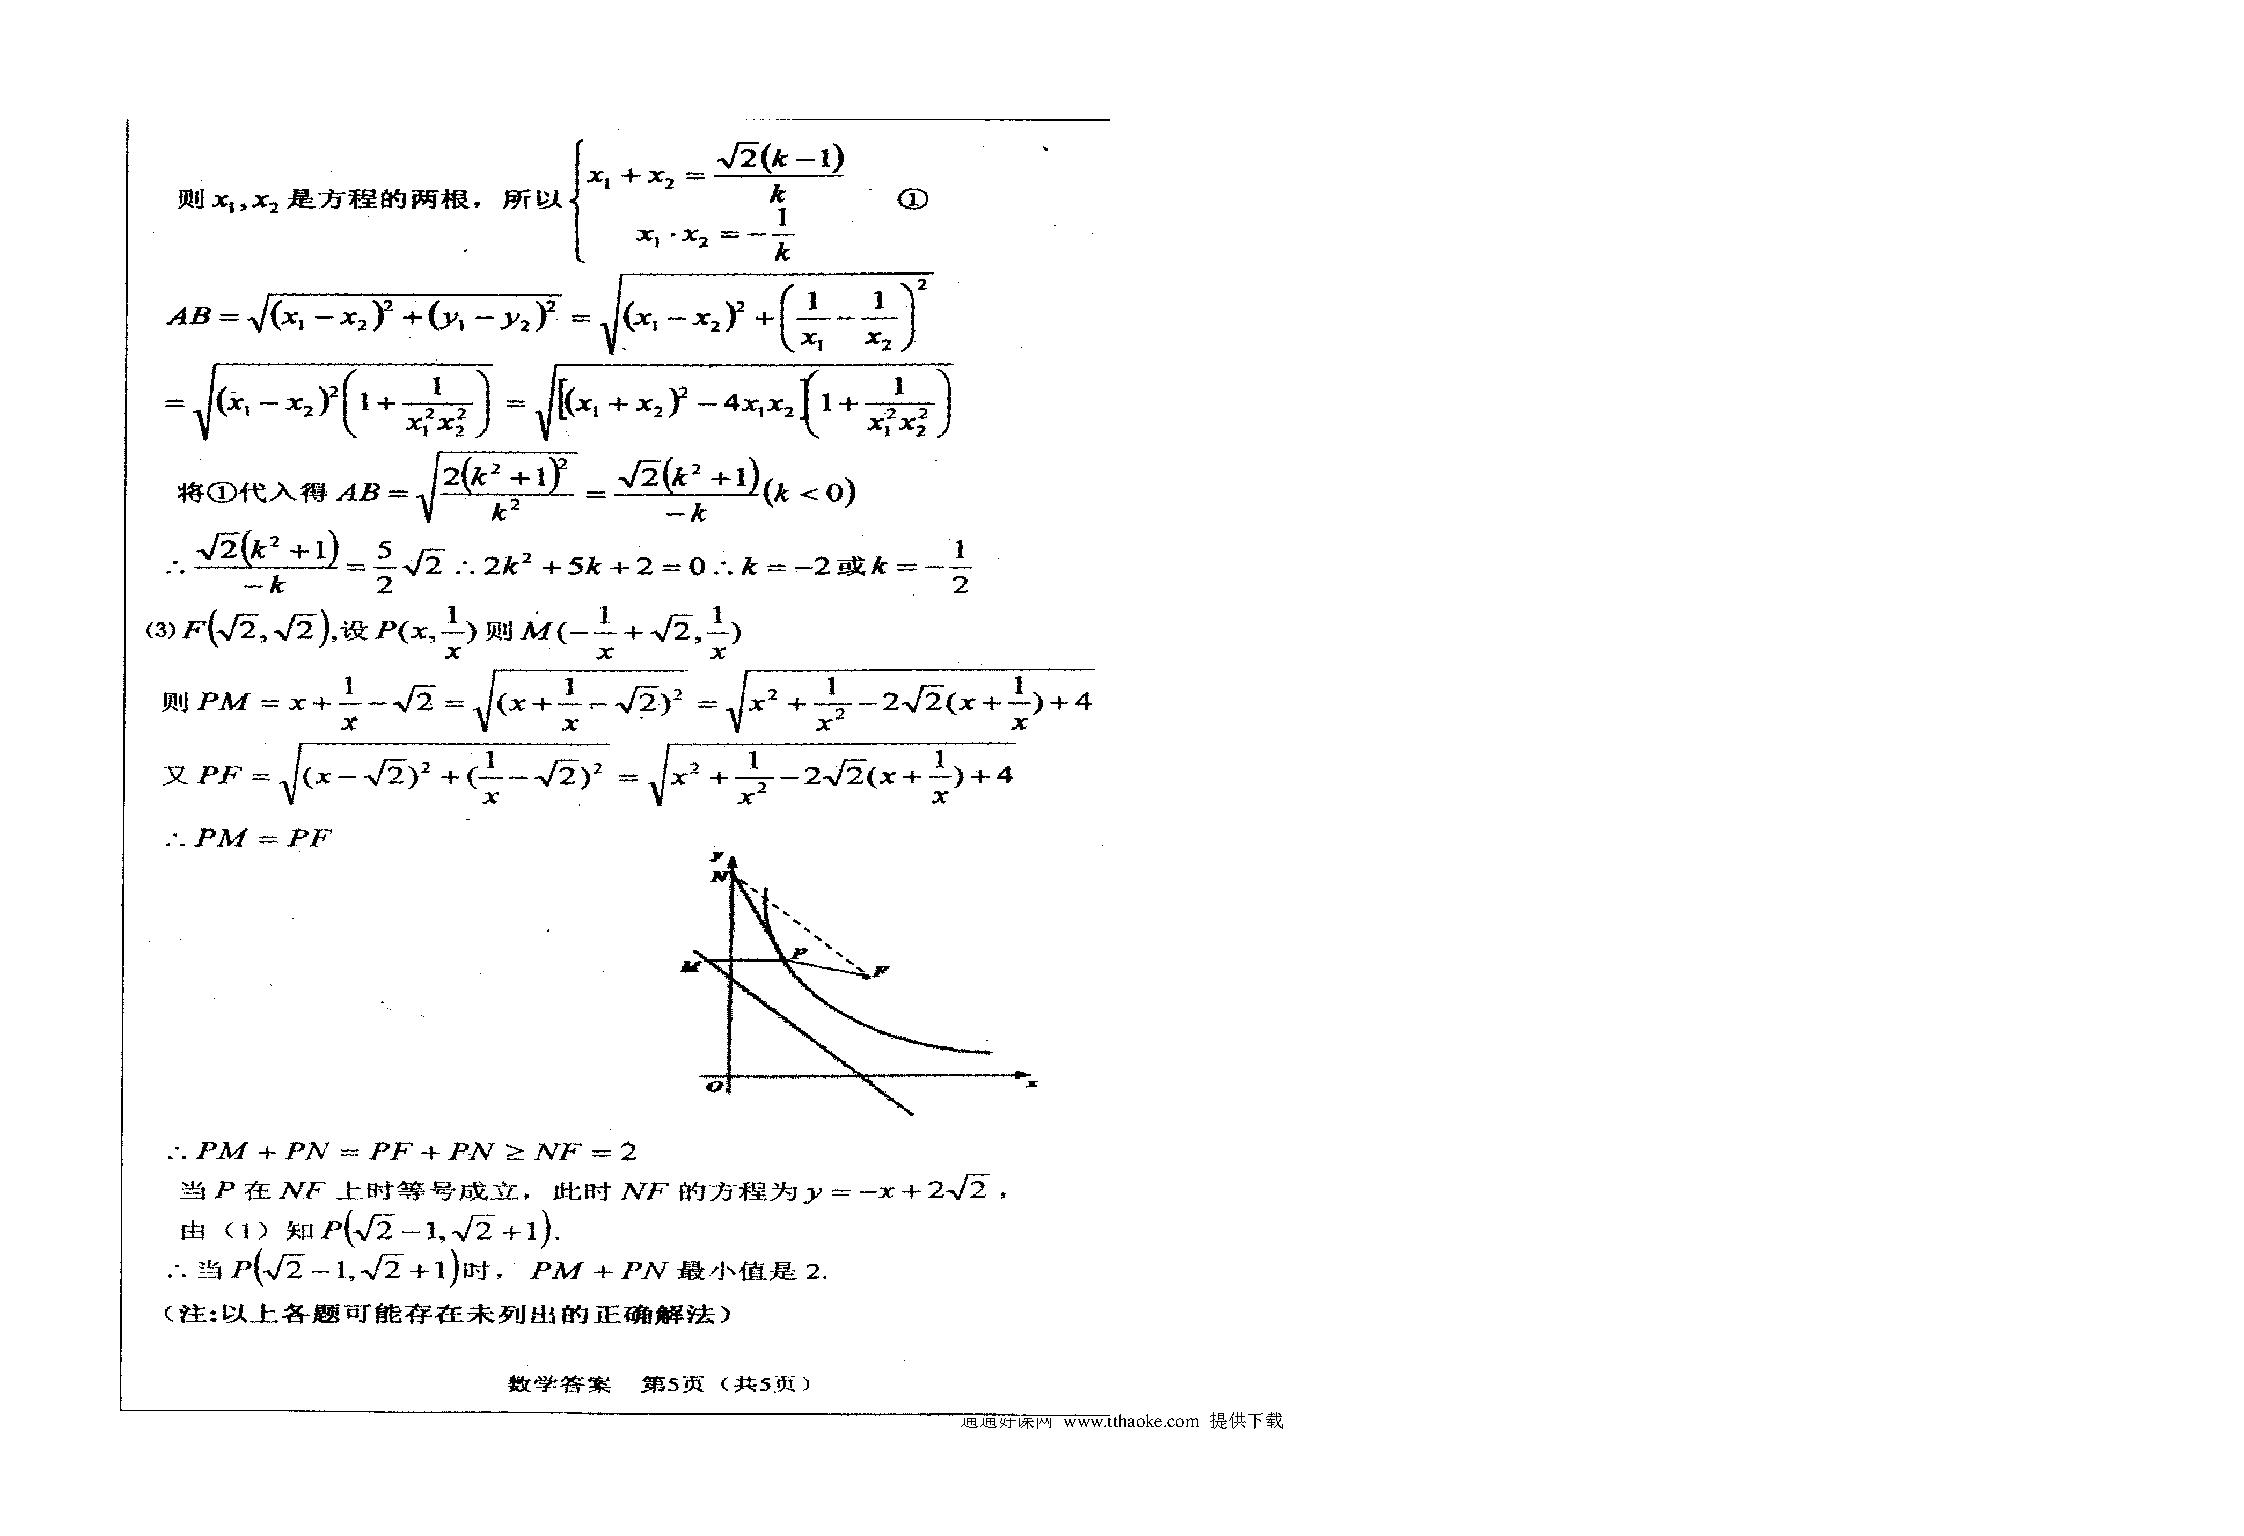 则 x₁,x₂ 是方程的两根，所以 { x₁ + x₂ = √2(k−1)/k ①
x₁·x₂ = −1/k
AB = √((x₁−x₂)²+(y₁−y₂)²) = √((x₁−x₂)²+(1/x₁−1/x₂)²)
= √((x₁−x₂)²(1+1/(x₁²x₂²))) = √([(x₁+x₂)²−4x₁x₂](1+1/(x₁²x₂²)))
将①代入得 AB = √(2(k²+1)²/k²) = √2(k²+1)/−k (k<0)
∴ √2(k²+1)/−k = 5/2 √2 ∴ 2k²+5k+2=0 ∴ k=−2或k=−1/2
(3) F(√2,√2),设 P(x,1/x) 则 M(−1/x+√2,1/x)
则 PM = x+1/x−√2 = √((x+1/x−√2)²) = √(x²+1/x²−2√2(x+1/x)+4)
又 PF = √((x−√2)²+(1/x−√2)²) = √(x²+1/x²−2√2(x+1/x)+4)
∴ PM = PF
y
N
P
M
F
O
x
∴ PM + PN = PF + PN ≥ NF = 2
当 P 在 NF 上时等号成立，此时 NF 的方程为 y = −x+2√2，
由（1）知 P(√2−1,√2+1).
∴ 当 P(√2−1,√2+1)时，PM + PN 最小值是 2.
（注:以上各题可能存在未列出的正确解法）
数学答案 第5页（共5页）
通通好课网 www.tthaoke.com 提供下载